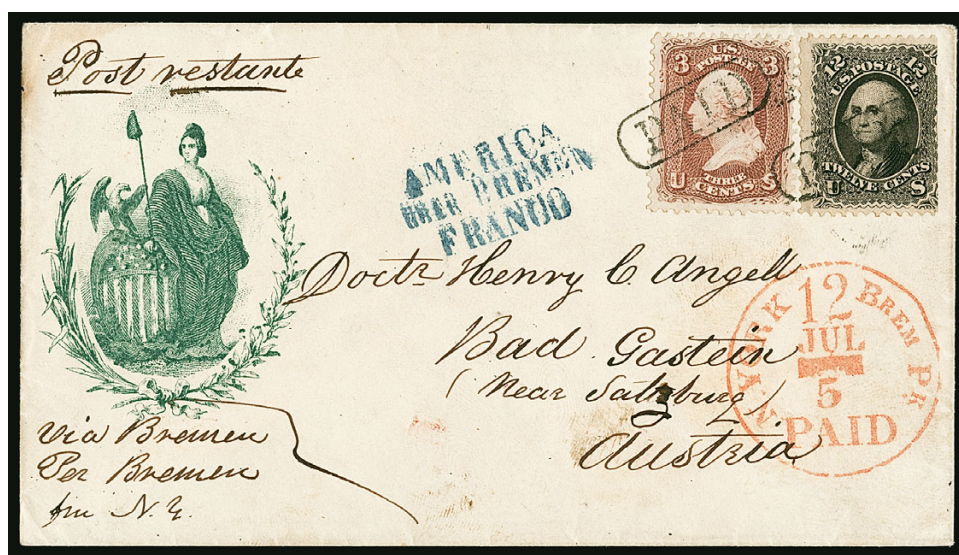 Post restante
3 U.S. 3
POSTAGE
THREE
U CENTS S
PAID
12 12
U.S. POSTAGE
TWELVE CENTS
U S
AMERICA
ÜBER BREMEN
FRANCO
Doctr Henry C. Angell
Bad Gastein
(Near Salzburg)
Austria
3
N. YORK BREM PKT
12
JUL
5
PAID
Via Bremen
Per Bremen
fm N.Y.